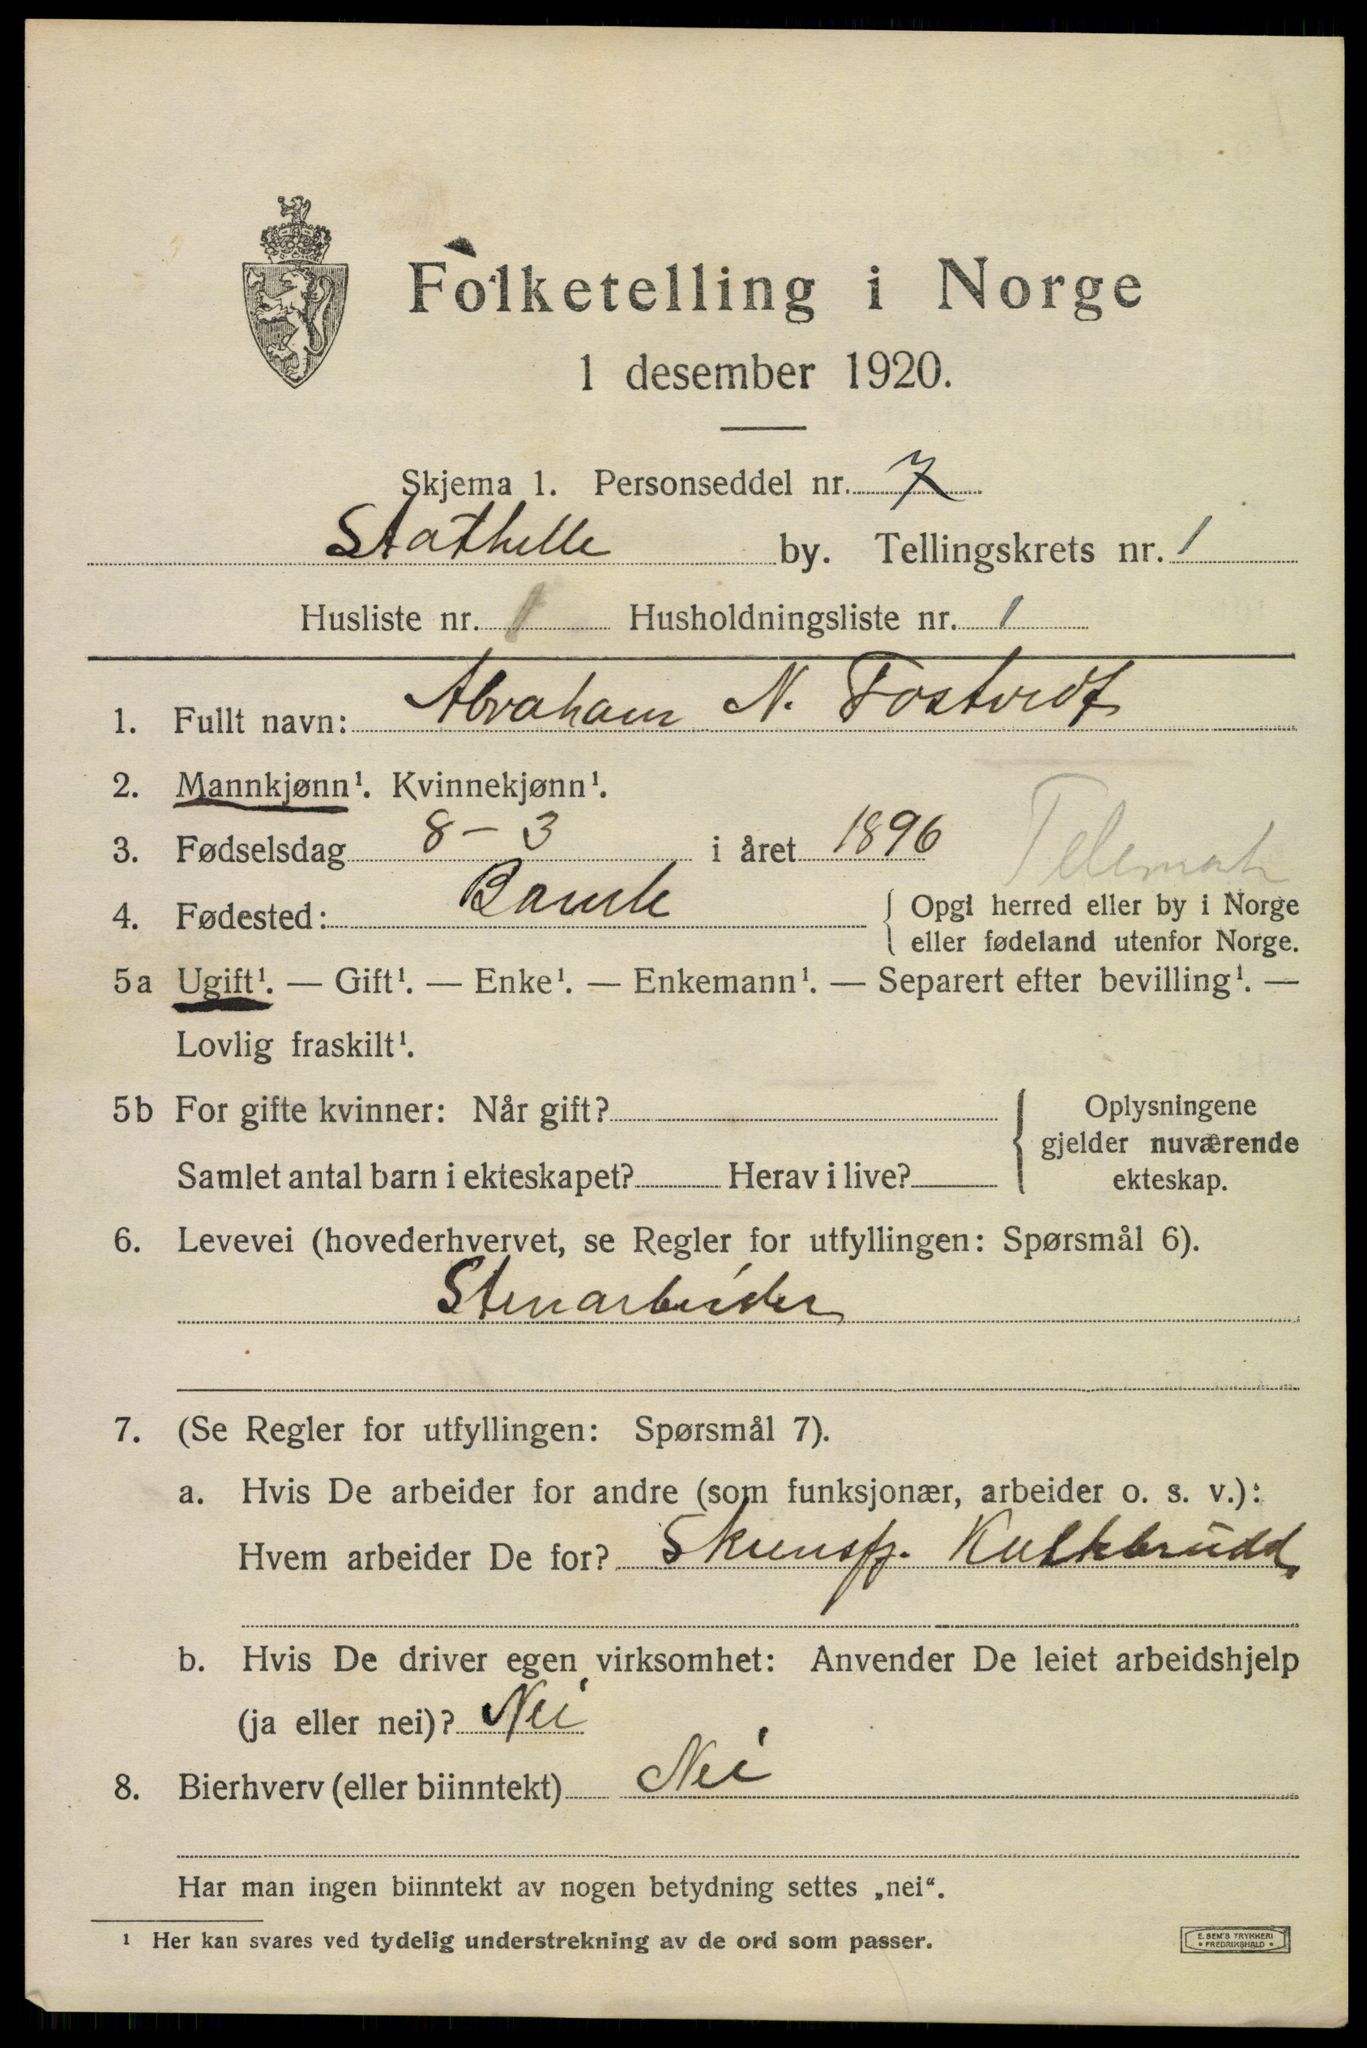 Folketelling i Norge
1 desember 1920.
Skjema 1. Personseddel nr. 7
Stathelle by. Tellingskrets nr. 1
Husliste nr. 1 Husholdningsliste nr. 1
1. Fullt navn: Abraham N. Tostvedt
2. Mannkjønn¹. Kvinnekjønn¹.
3. Fødselsdag 8 – 3 i året 1896
Telemark
4. Fødested: Bamle { Opgi herred eller by i Norge
eller fødeland utenfor Norge.
5a Ugift¹. — Gift¹. — Enke¹. — Enkemann¹. — Separert efter bevilling¹. —
Lovlig fraskilt¹.
5b For gifte kvinner: Når gift? { Oplysningene
gjelder nuværende
Samlet antal barn i ekteskapet? Herav i live? ekteskap.
6. Levevei (hovederhvervet, se Regler for utfyllingen: Spørsmål 6).
Stenarbeider
7. (Se Regler for utfyllingen: Spørsmål 7).
a. Hvis De arbeider for andre (som funksjonær, arbeider o. s. v.):
Hvem arbeider De for? Kalkbrudd
b. Hvis De driver egen virksomhet: Anvender De leiet arbeidshjelp
(ja eller nei)? Nei
8. Bierhverv (eller biinntekt) Nei
Har man ingen biinntekt av nogen betydning settes „nei“.
¹ Her kan svares ved tydelig understrekning av de ord som passer.
E. SEM'S TRYKKERI
• FREDRIKSHALD •